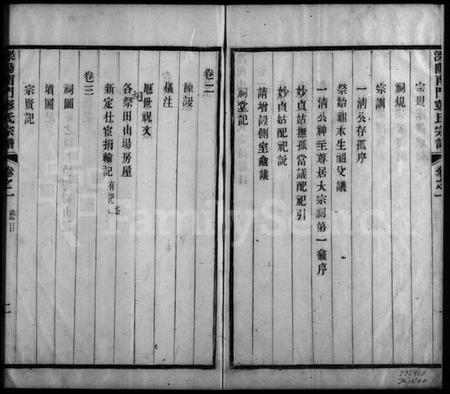 溧陽南門彭氏宗譜
卷之一
宗規
祠規
宗訓
一清公存孤序
祭始祖本生祖文議
一清公神主尊居大宗祠第一龕序
妙貞姑撫孤當議配祀引
妙貞姑配祀說
請增設側室龕議
祠堂記
卷二
陳設
儀注
歷世祝文
各祭田山場房屋
新定仕宦捐輸記
卷三
祠圖
墳圖
宗賢記
溧陽南門彭氏宗譜
卷之一
總目
二
FamilySearch